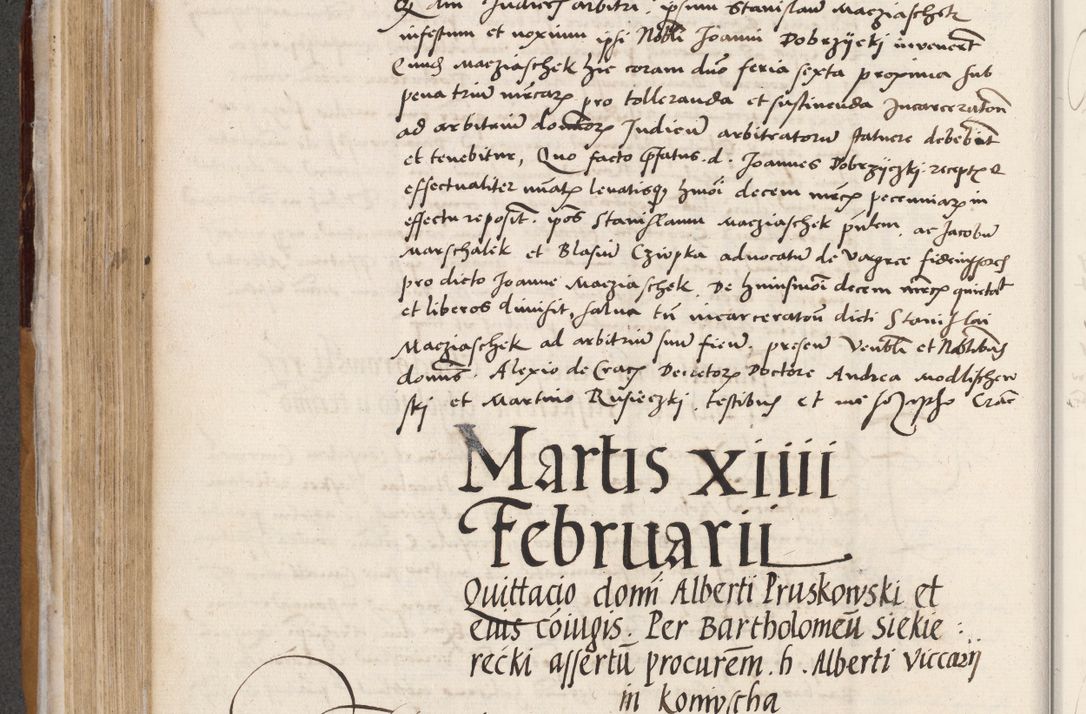 Q dm Judices arbitri ipsum Stanislaum Maczaschek
infestum et noxium ipsi Nobli Joanni Dobrzycki invenerīt
Maczaschek hic coram duō feria sexta proxima sub
pena trium mrcarz pro tolleranda et sustinenda Incarceratōn
ad arbitrium domorz Judicum arbitratorum statuere debebit
et tenebitur, Quo facto pfatus d. Joannes Dobrzyczki receptz &
effectualiter levatisqz hmōi decem mrcz pecuniarz in
effectu reposit. ipōs Stanislaum Maczaschek pntem ac Jacobum
Marschalek et Blasium Czopka advocatum de
pro dicto Joanne Maczaschek De hmōi decem mrcz quietat
et liberos dimisit, salva tn incarceratoē dicti Stanislai
Maczaschek ad arbitrium suum fiena. presen Venbli et Nobilibus
domis Alexio de Cracz Decretorz Doctore Andrea Modlischew
ski et Martino Rusieczki testibus et me Josepho Crac
Martis xiiii
Februarii
Quittacio domi Alberti Pruskowski et
eius coiugis. Per Bartholomeū Siekie:
recki assertū procurem. h. Alberti Viccarij
in Komyscha